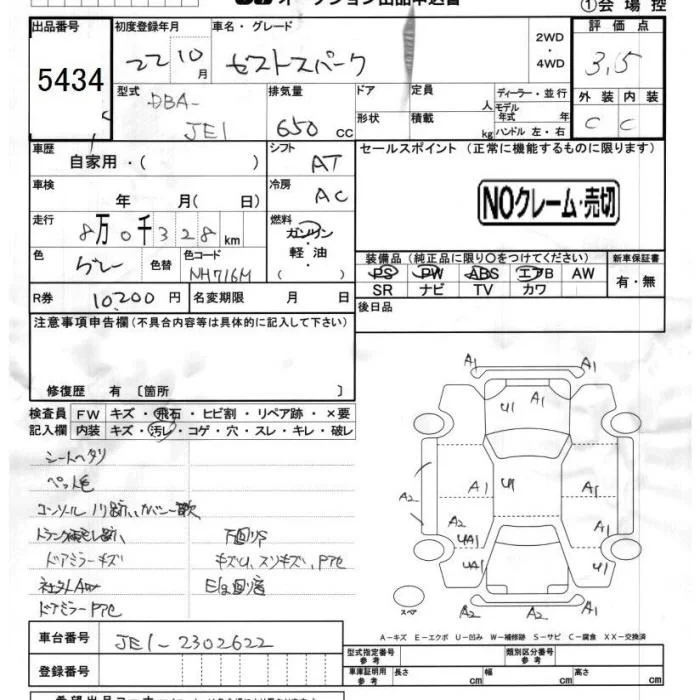 ①会場控
出品番号 初度登録年月 車名・グレード 評価点
5434
22 10月 ゼストスパーク 2WD・4WD 3,5
型式 DBA-JE1 排気量 650cc ドア 定員 人 ディーラー・並行
形状 積載 kg モデル年式 年式 ハンドル 左・右
外装 内装
C C
車歴 自家用・( ) シフト AT セールスポイント (正常に機能するものに限ります)
車検 年 月( 日) 冷房 AC
NOクレーム・売切
走行 8万0千328km 燃料 ガソリン・軽油 ( )
色 グレー 色替 色コード NH716M
装備品(純正品に限り○をつけてください) 新車保証書
PS PW ABS エアB AW 有・無
SR ナビ TV カワ
R券 10,200円 名変期限 月 日 後日品
注意事項申告欄(不具合内容等は具体的に記入して下さい)
修復歴 有〔箇所 〕
検査員 FW キズ・飛石・ヒビ割・リペア跡・×要
記入欄 内装 キズ・汚レ・コゲ・穴・スレ・キレ・破レ
シートヘタリ
ペット毛
トランク
下回りサ
ドアミラーキズ
社外A
ドアミラーPアセ
A1 A1
U1 A1
A1 U1 A1
A2 A2 A2
UA1
UA1 U1
A2 A2
スペア
A-キズ E-エクボ U-凹み W-補修跡 S-サビ C-腐食 XX-交換済
車台番号 JE1-2302622
登録番号
型式指定番号 参考 類別区分番号 参考
車庫証明用 参考 長さ cm 幅 cm 高さ cm